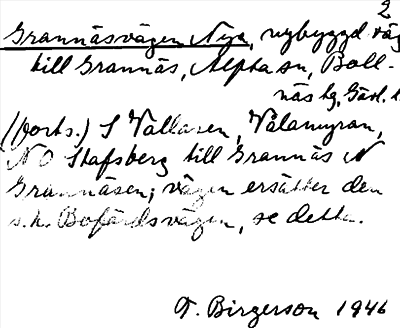 2
Grannäsvägen Nya, nybyggd väg
till Grannäs, Alfta sn, Boll-
näs tg, Gävl. l.
(forts.) S Vallasen, Válamyran,
NO Stafsberg till Grannäs N
Grannåsen; vägen ersätter den
s.k. Bofärdsvägen, se detta.
T. Birgerson 1946